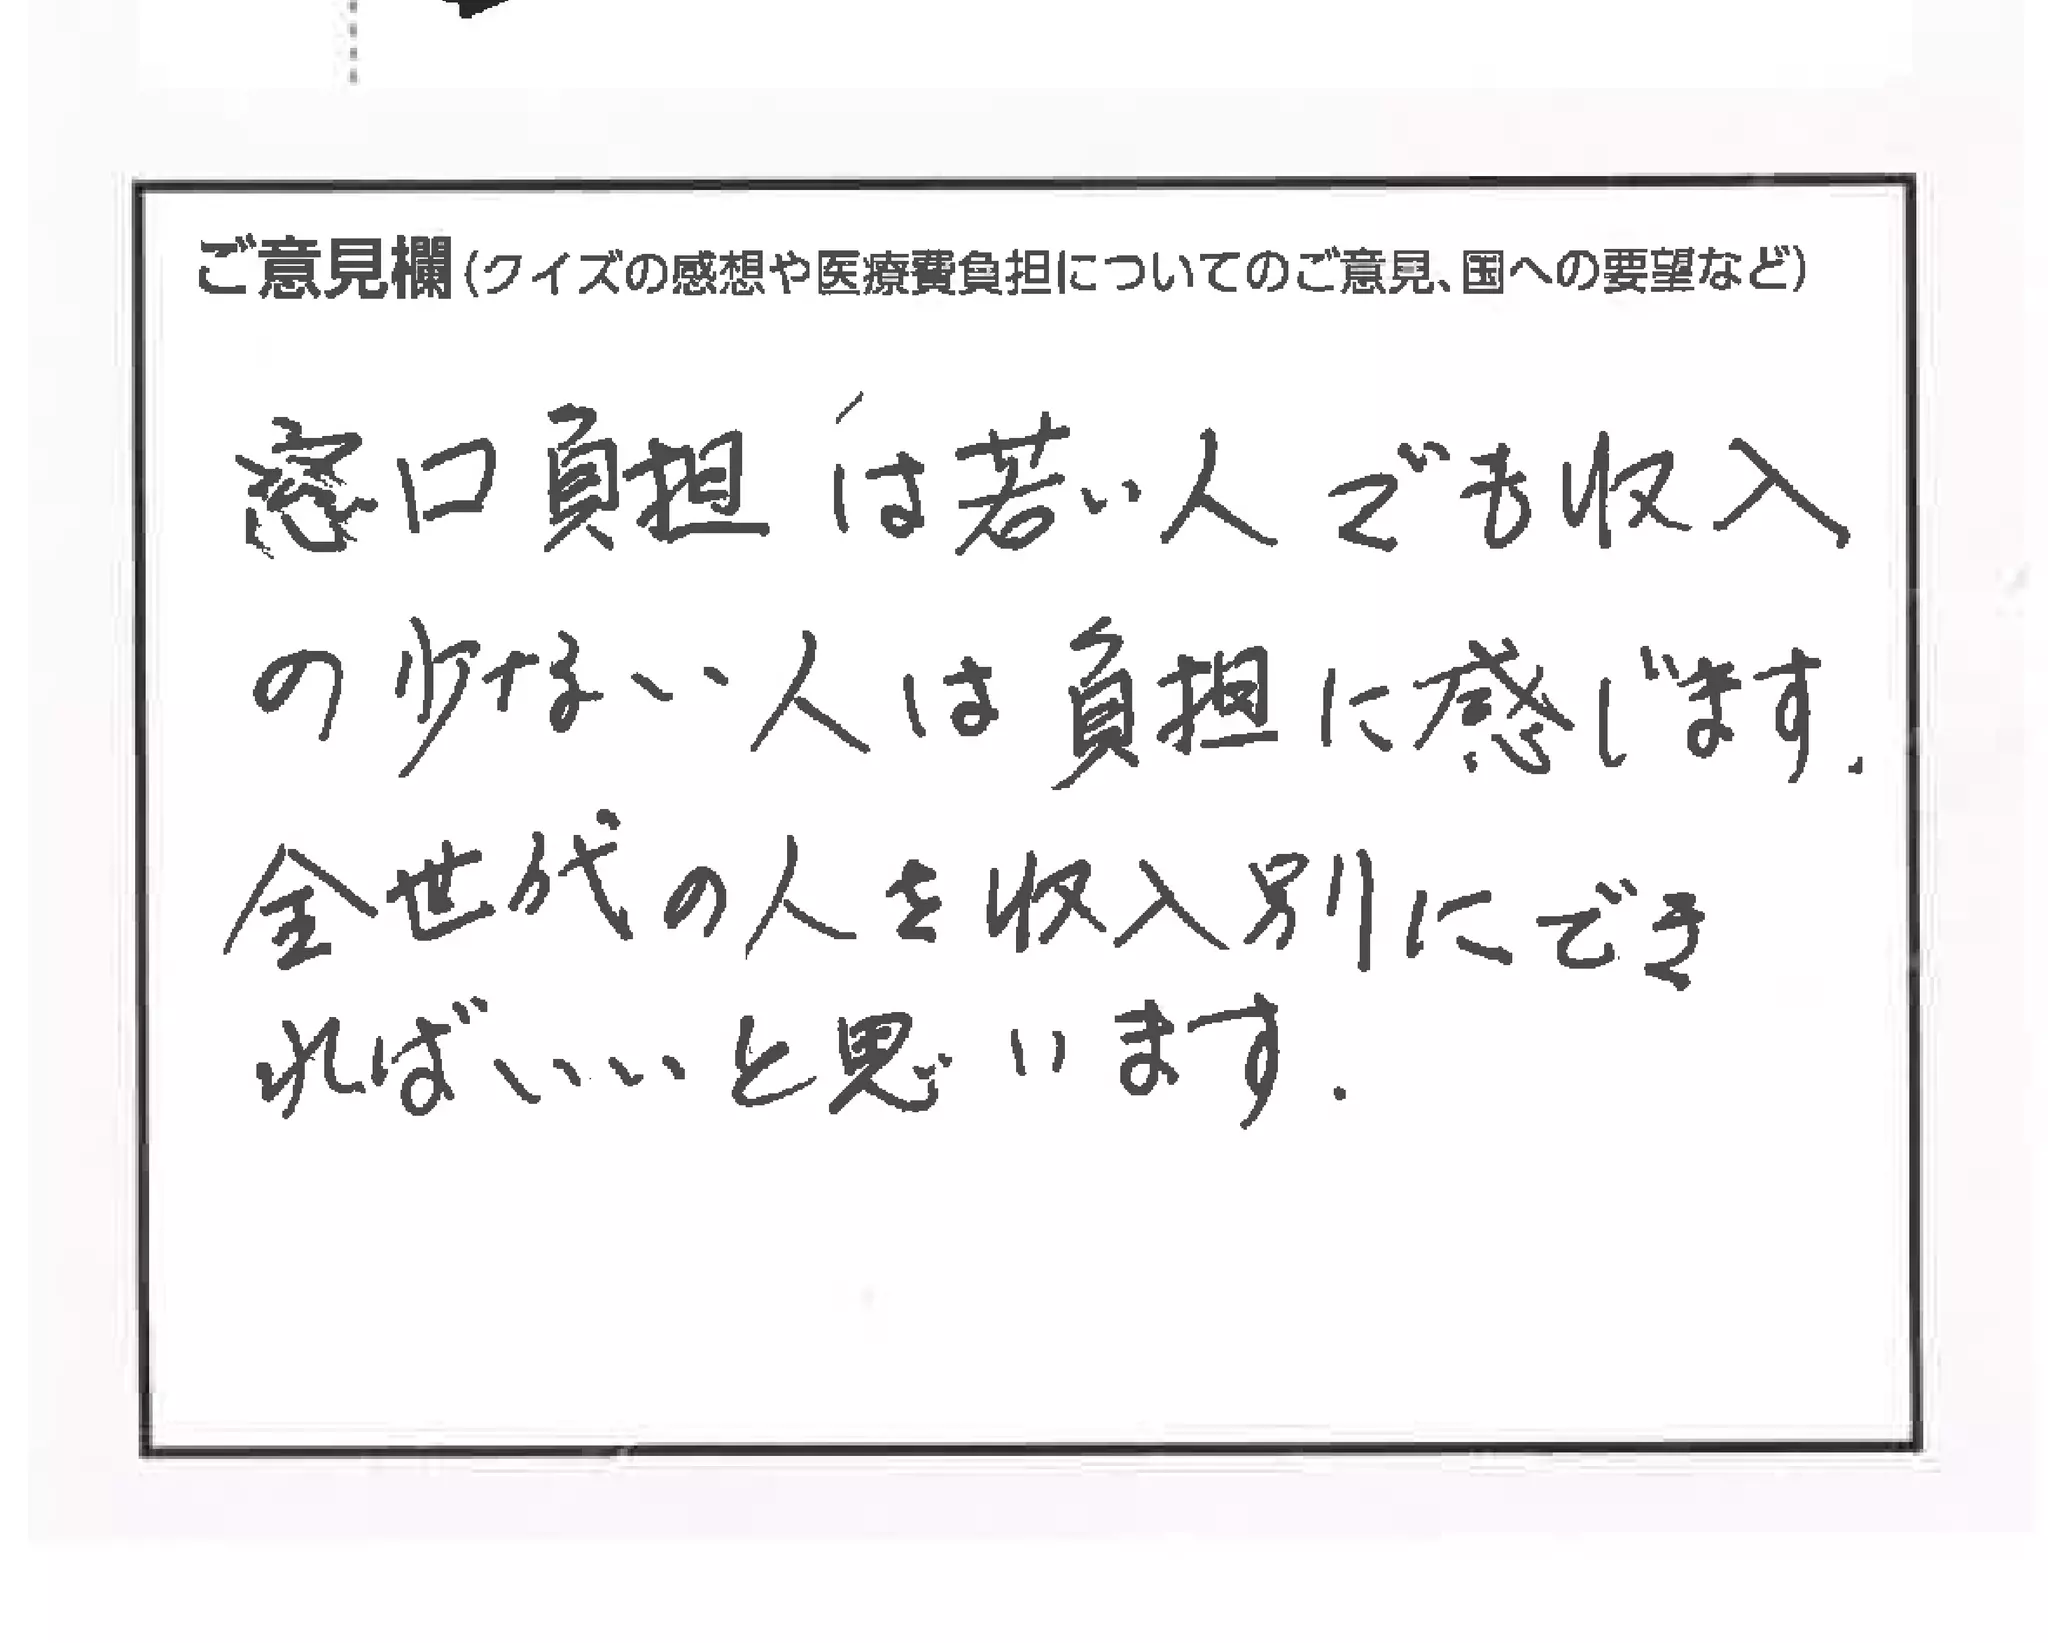 ご意見欄(クイズの感想や医療費負担についてのご意見、国への要望など)
窓口負担は若い人でも収入
の少ない人は負担に感じます.
全世代の人を収入別にでき
ればいいと思います.